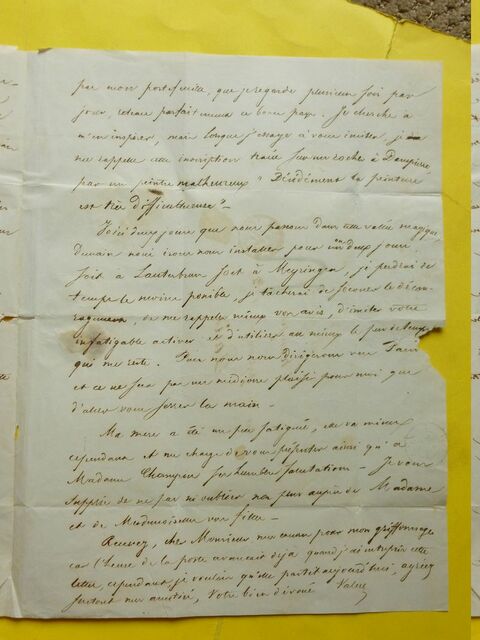 par mon portefeuille, que je regarde plusieurs fois par
jour, parfait ce beau pays. Je cherche à
m'en inspirer, mais lorsque j'essaye à vous imiter, je
me rappelle cette inscription tracée sur une roche à Dampierre
par un peintre malheureux " Décidément la peinture
est très difficultueuse " -
Voici deux jours que nous passons dans cette vallée magique,
demain nous irons nous installer pour un deux jours
soit à Lauterbrun soit à Meyringen, je
temps le moins possible, je tacherai de secouer le décou-
ragement, de me rappeler mieux vos avis, d'imiter votre
infatigable activité et d'utiliser au mieux le peu de temps
qui me reste. Puis nous nous dirigerons vers Paris
et ce ne sera pas un médiocre plaisir pour moi que
d'aller vous serrer la main -
Ma mère a été un peu fatiguée, elle va mieux
cependant et me charge de vous présenter ainsi qu'à
Madame ses humbles salutations - Je vous
supplie de ne pas m'oublier non plus auprès de Madame
et de Mesdemoiselles vos filles -
Recevez, cher Monsieur mes excuses pour mon griffonnage
car l'heure de la poste avançait déjà quand j'ai entrepris cette
lettre, cependant je voulais qu'elle partît aujourd'hui, agréez
surtout mes amitiés, Votre bien dévoué